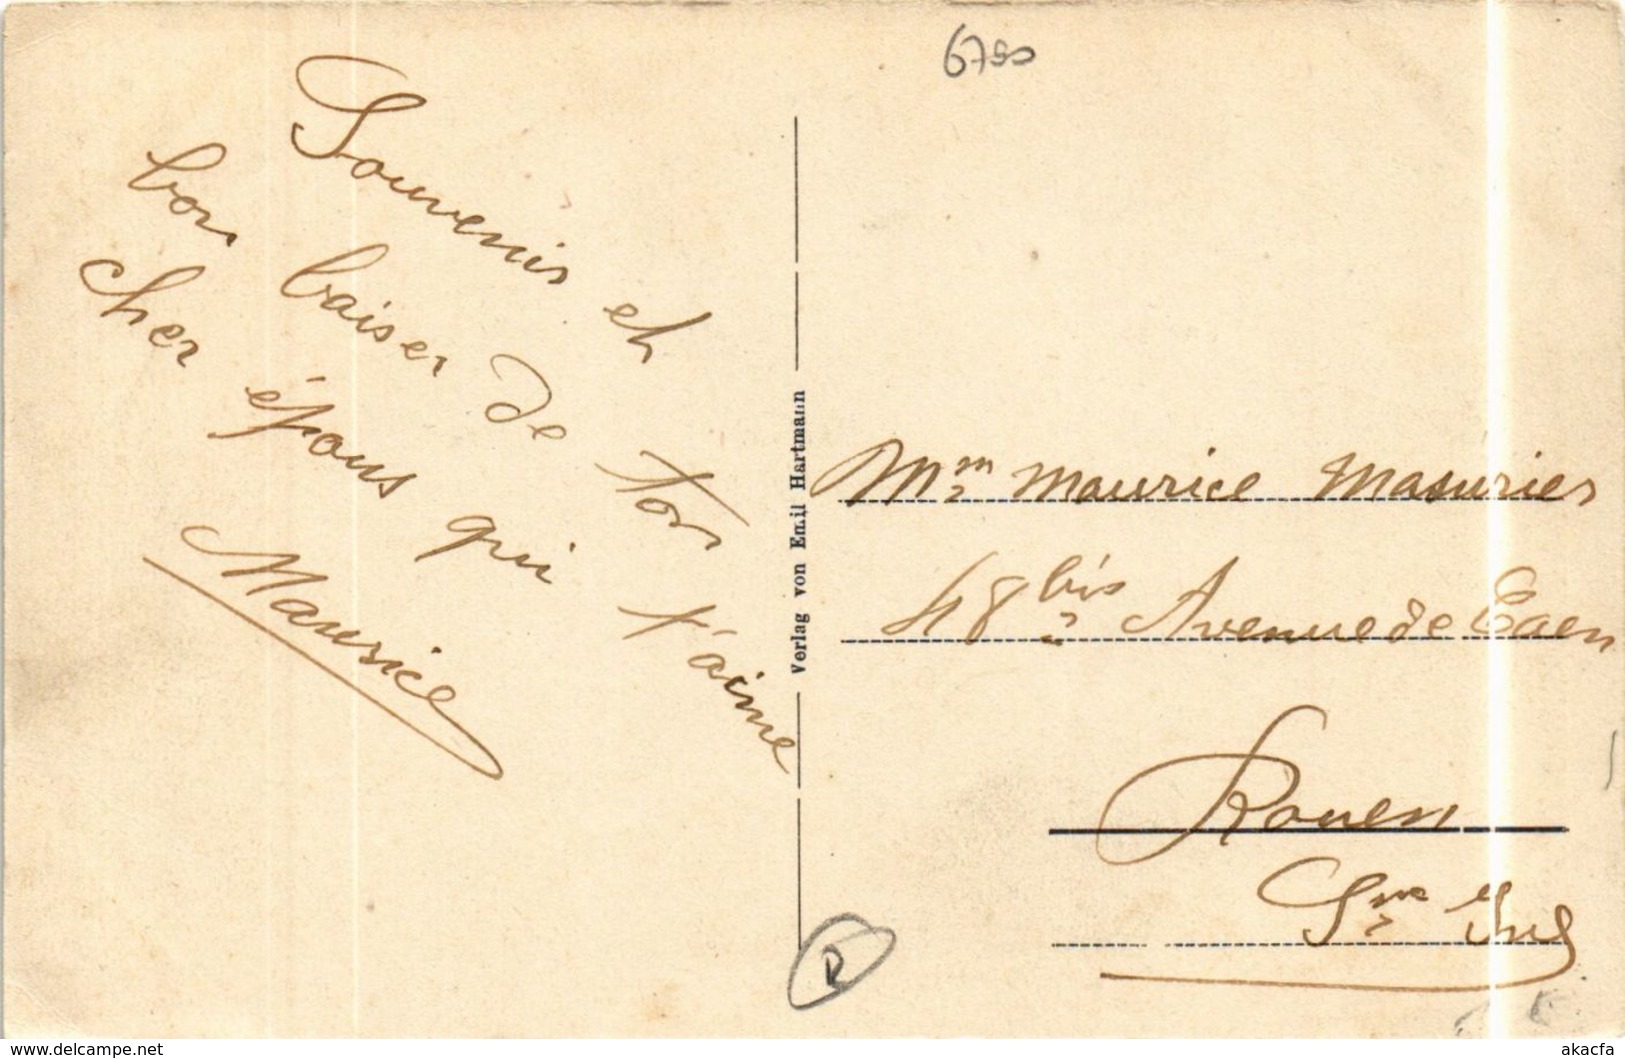 6750
Souvenir et
bon baiser de ton
cher épous qui t'aime
Maurice
Verlag von Emil Hartmann
Mme Maurice Masurier
48 bis Avenue de Caen
Rouen
Sne Infre
R
www.delcampe.net
akacfa